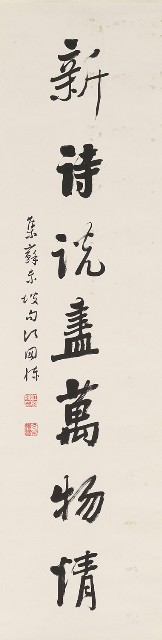 新詩說盡萬物情
集蘇東坡句江國棟